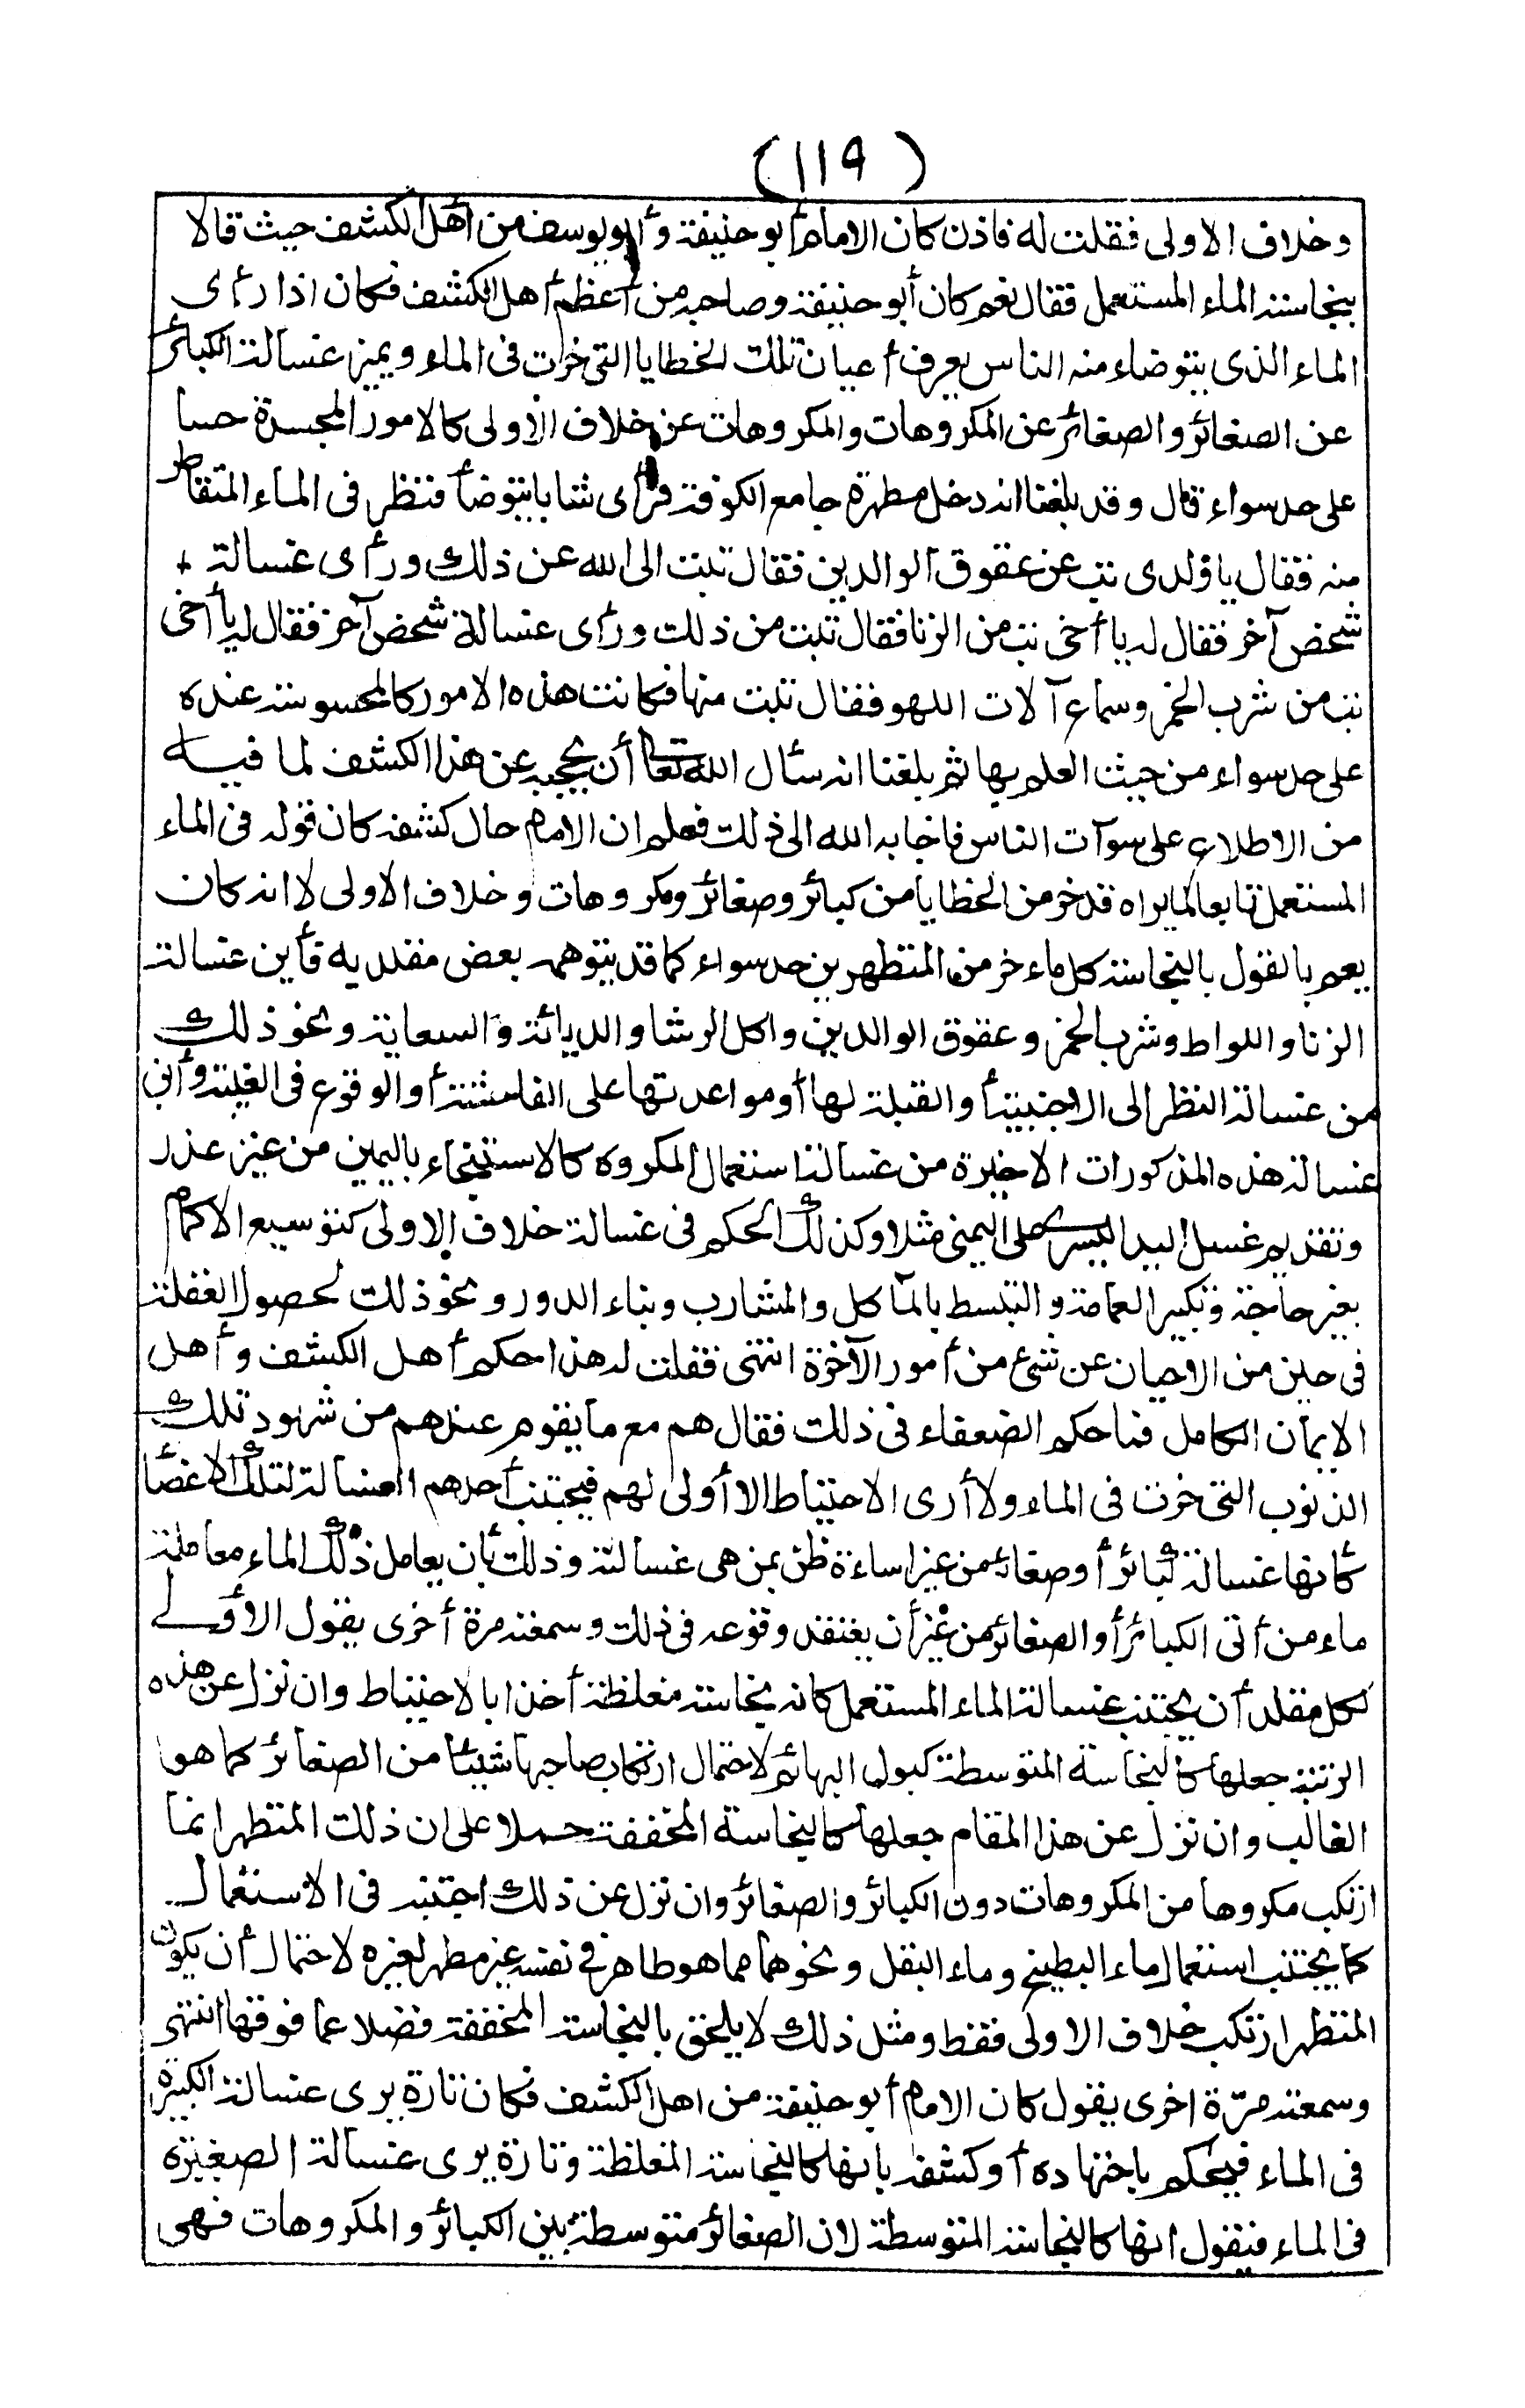 (١١٩)
وخلاف الاولى فقلت له فاذن كان الامام أبو حنيفة وأبو يوسف من أهل الكشف حيث قالا
بنجاسة الماء المستعمل فقال نعم كان أبو حنيفة وصاحبه من أعظم أهل الكشف فكان اذا رأى
الماء الذى يتوضاء منه الناس يعرف أعيان تلك الخطايا التى خرت فى الماء ويميز غسالة الكبائر
عن الصغائر والصغائر عن المكروهات والمكروهات عن خلاف الاولى كالامور المجسدة حسا
على حد سواء قال وقد بلغنا انه دخل مطهرة جامع الكوفة فرأى شابا يتوضأ فنظر فى الماء المتقاطر
منه فقال يا ولدى تب عن عقوق الوالدين فقال تبت الى الله عن ذلك ورأى غسالة
شخص آخر فقال له يا أخى تب من الزنا فقال تبت من ذلك ورأى غسالة شخص آخر فقال له يا أخى
تب من شرب الخمر وسماع آلات اللهو فقال تبت منها فكانت هذه الامور كالمحسوسة عنده
على حد سواء من حيث العلم بها ثم بلغنا انه سأل الله تعا أن يحجبه عن هذا الكشف لما فيه
من الاطلاع على سوآت الناس فاجابه الله الى ذلك فعلم ان الامام حال كشفه كان قوله فى الماء
المستعمل تابعا لما يراه قد خر من الخطايا من كبائر وصغائر ومكروهات وخلاف الاولى لا انه كان
يعم بالقول بالنجاسة كل ماء خر من المتطهرين حد سواء كما قد يتوهمه بعض مقلديه فأين غسالة
الزنا واللواط وشرب الخمر وعقوق الوالدين واكل الرشا والدياثة والسعاية ونحو ذلك
من غسالة النظر الى الاجنبية أو القبلة لها أو مواعدتها على الفاحشة أو الوقوع فى الغيبة وأين
غسالة هذه المذكورات الاخيرة من غسالة استعمال المكروه كالاستنجاء باليمين من غير عذر
وتقديم غسل اليد اليسرى على اليمنى مثلا وكذلك الحكم فى غسالة خلاف الاولى كتوسيع الاكمام
بغير حاجة وتكبير العمامة والتبسط بالمآكل والمشارب وبناء الدور ونحو ذلك لحصول الغفلة
فى حين من الاحيان عن شئ من أمور الآخرة انتهى فقلت له هذا حكم أهل الكشف وأهل
الايمان الكامل فما حكم الضعفاء فى ذلك فقال هم مع ما يقوم عندهم من شهود تلك
الذنوب التى خرت فى الماء ولا أرى الاحتياط الا أولى لهم فيجتنب أحدهم الغسالة لتلك الاعضا
كأنها غسالة كبائر أو صغائر من غير اساءة ظن بمن هى غسالته وذلك بأن يعامل ذلك الماء معاملة
ماء من أتى الكبائر أو الصغائر من غير أن يعتقد وقوعه فى ذلك وسمعته مرة أخرى يقول الأولى
لكل مقلد أن يجتنب غسالة الماء المستعمل كانه نجاسة مغلظة أخذا بالاحتياط وان نزل عن هذه
الرتبة جعلها كالنجاسة المتوسطة كبول البهائم لاحتمال ارتكاب صاحبها شيئا من الصغائر كما هو
الغالب وان نزل عن هذا المقام جعلها كالنجاسة المخففة حملا على ان ذلك المتطهر انما
ارتكب مكروها من المكروهات دون الكبائر والصغائر وان نزل عن ذلك اجتنبه فى الاستعمال
كما يجتنب استعمال ماء البطيخ وماء البقل ونحوهما مما هو طاهر فى نفسه غير مطهر لغيره لاحتمال أن يكون
المتطهر ارتكب خلاف الاولى فقط ومثل ذلك لا يلحق بالنجاسة المخففة فضلا عما فوقها انتهى
وسمعته مرّة اخرى يقول كان الامام أبو حنيفة من اهل الكشف فكان تارة يرى غسالة الكبيرة
فى الماء فيحكم باجتهاده أو كشفه بانها كالنجاسة المغلظة وتارة يرى غسالة الصغيرة
فى الماء فيقول انها كالنجاسة المتوسطة لان الصغائر متوسطة بين الكبائر والمكروهات فهى